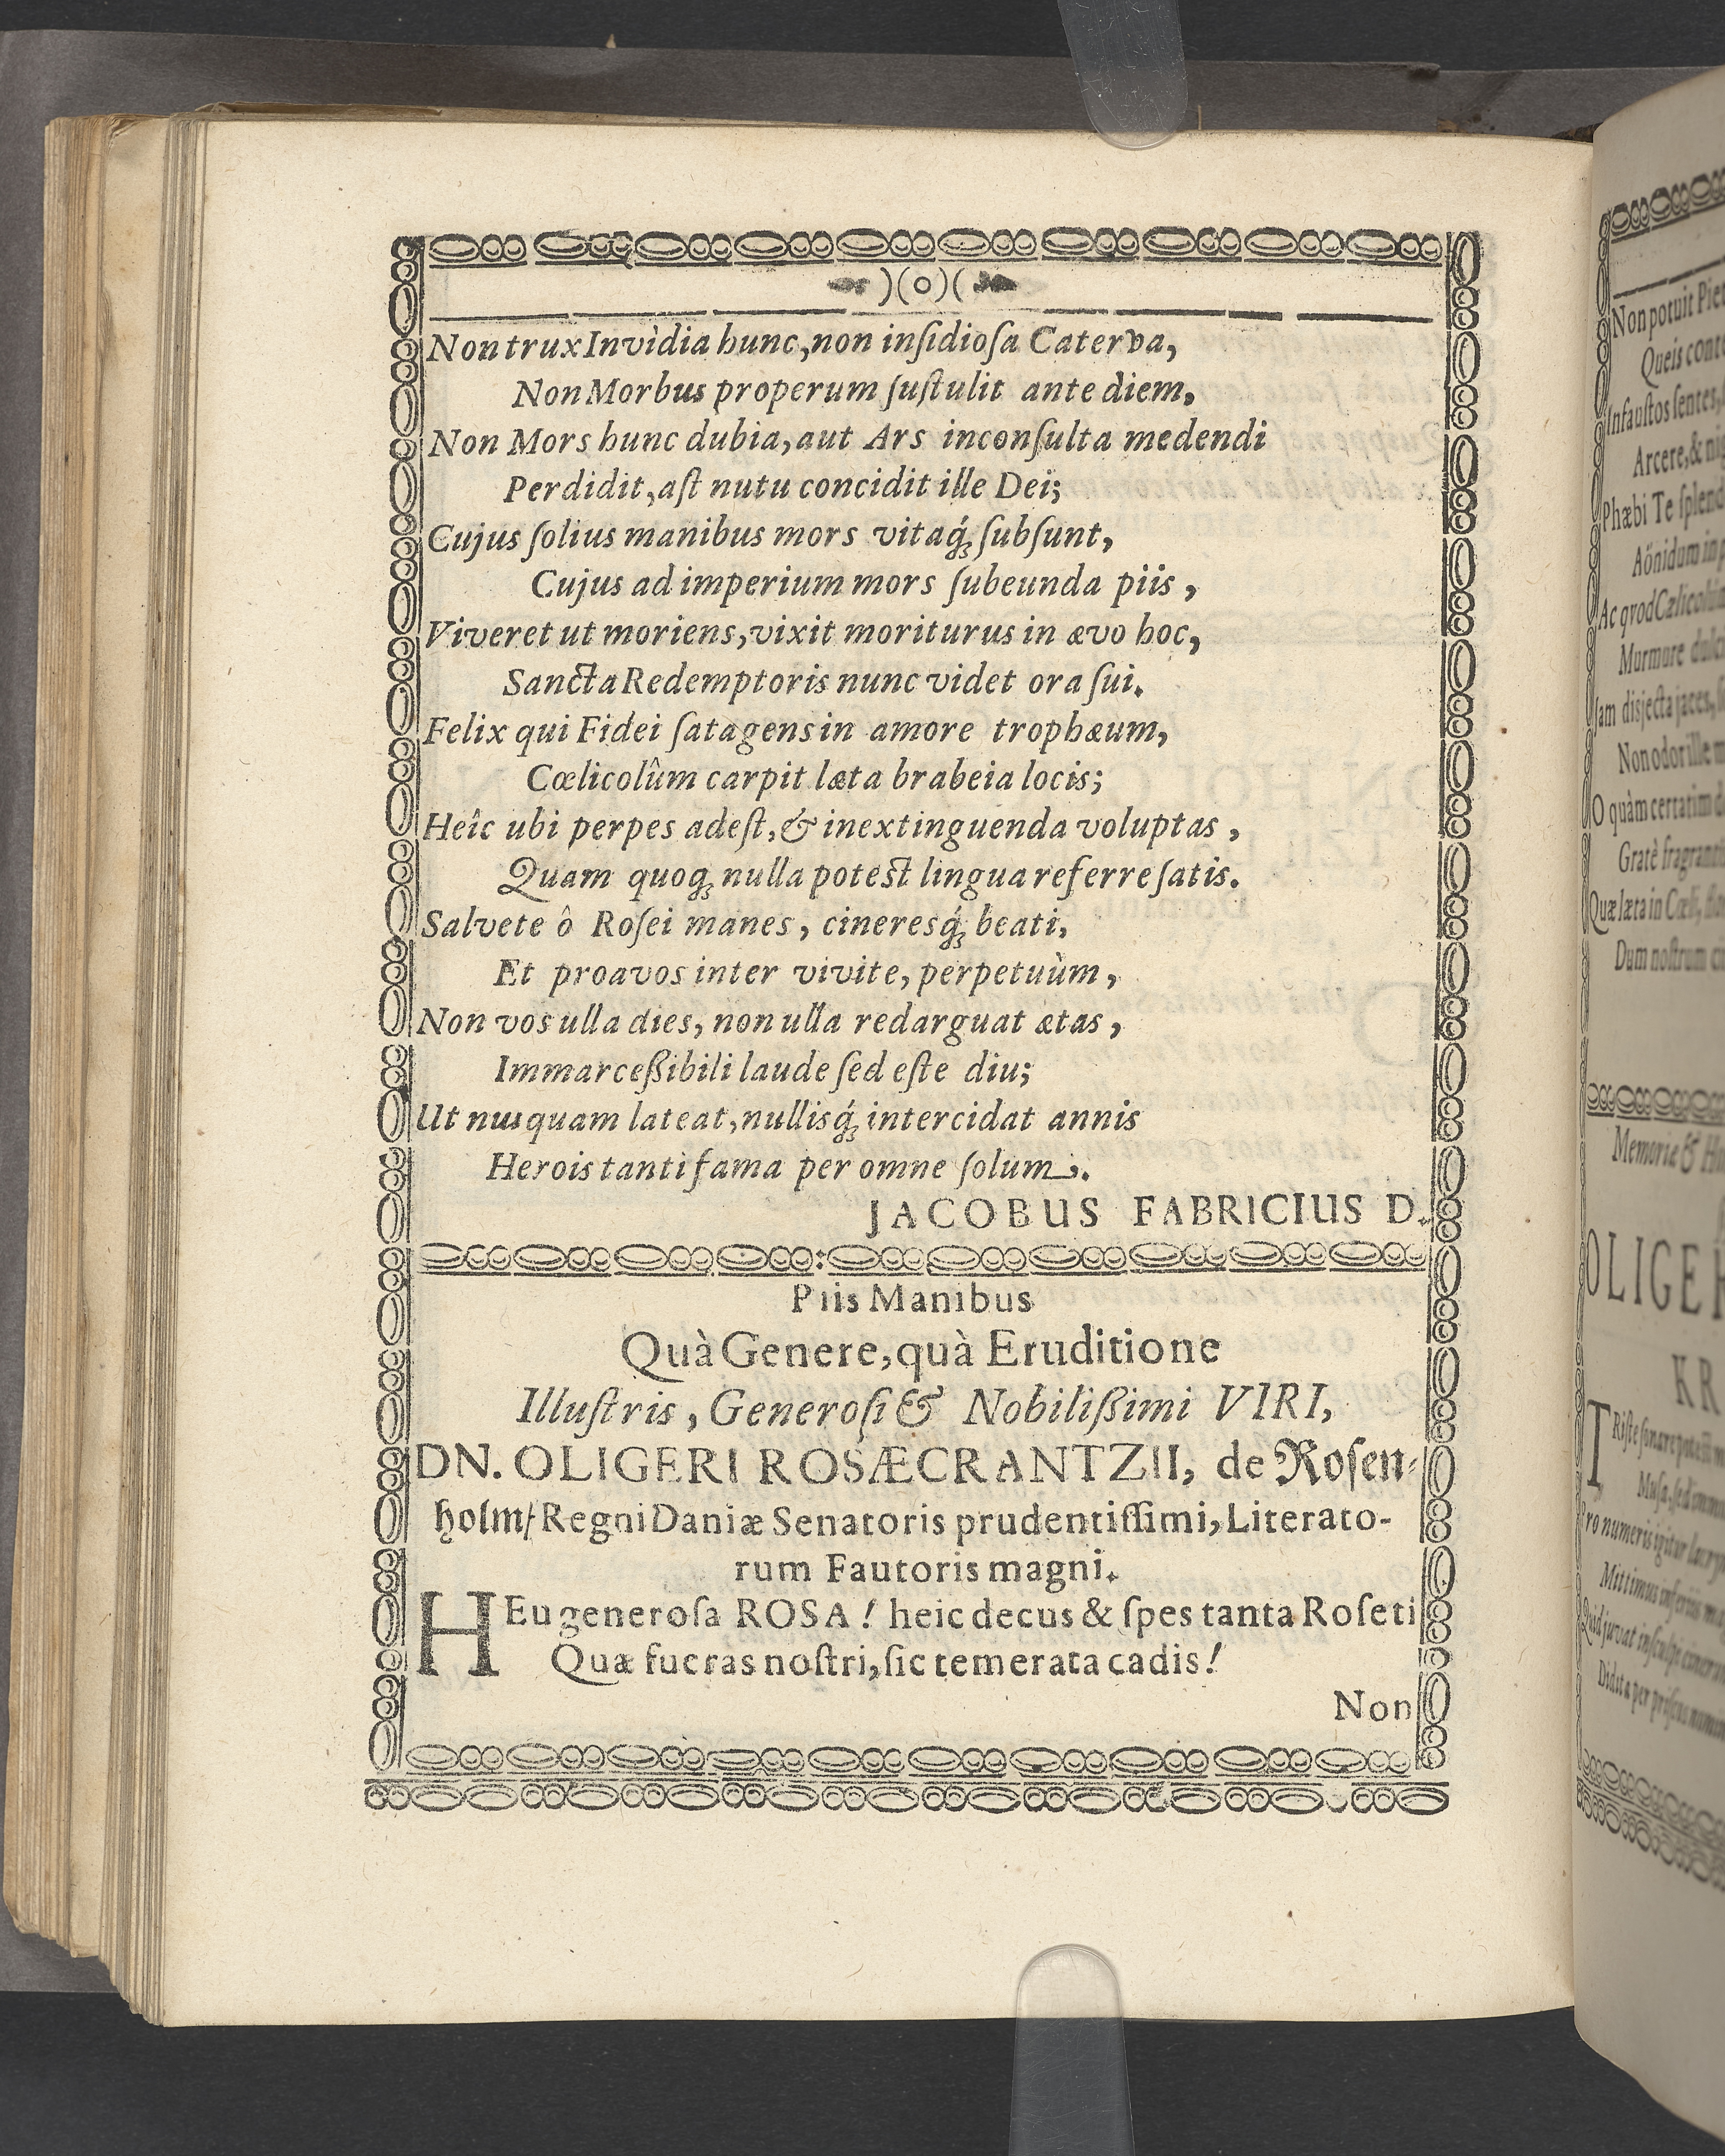 )(o)(
Non trux Invìdia hunc, non insidiosa Caterva,
Non Morbus properum sustulit ante diem,
Non Mors hunc dubia, aut Ars inconsulta medendi
Perdidit, ast nutu concidit ille Dei;
Cujus solius manibus mors vitaq́; subsunt,
Cujus ad imperium mors subeunda piis,
Viveret ut moriens, vixit moriturus in ævo hoc,
Sancta Redemptoris nunc videt ora sui.
Felix qui Fidei satagens in amore trophæum,
Cœlicolûm carpit læta brabeia locis;
Heîc ubi perpes adest, & inextinguenda voluptas,
Quam quoq; nulla potest lingua referre satis.
Salvete ô Rosei manes, cineresq́; beati,
Et proavos inter vivite, perpetuùm,
Non vos ulla dies, non ulla redarguat ætas,
Immarceßibili laude sed este diu;
Ut nusquam lateat, nullisq́; intercidat annis
Herois tanti fama per omne solum.
JACOBUS FABRICIUS D.
Piis Manibus
Quà Genere, quà Eruditione
Illustris, Generosi & Nobilißimi VIRI,
DN. OLIGERI ROSÆCRANTZII, de Rosen-
holm/ Regni Daniæ Senatoris prudentissimi, Literato-
rum Fautoris magni.
HEu generosa ROSA! heic decus & spes tanta Roseti
Quæ fueras nostri, sic temerata cadis!
Non
Non potuit
Queis
Infaustos sentes,
Arcere, &
Phæbi Te
Aönidum in
Ac qvod
Murmure
Jam disjecta jaces,
Non odor ille
O quàm certatim
Gratè
Quæ læta in Cœli,
Dum nostrum
Memoriæ &
OLIGE
KR
TRiste sonare potest
Musa, sed
Pro numeris igitur
Mittimus inferiis
Quid juvat